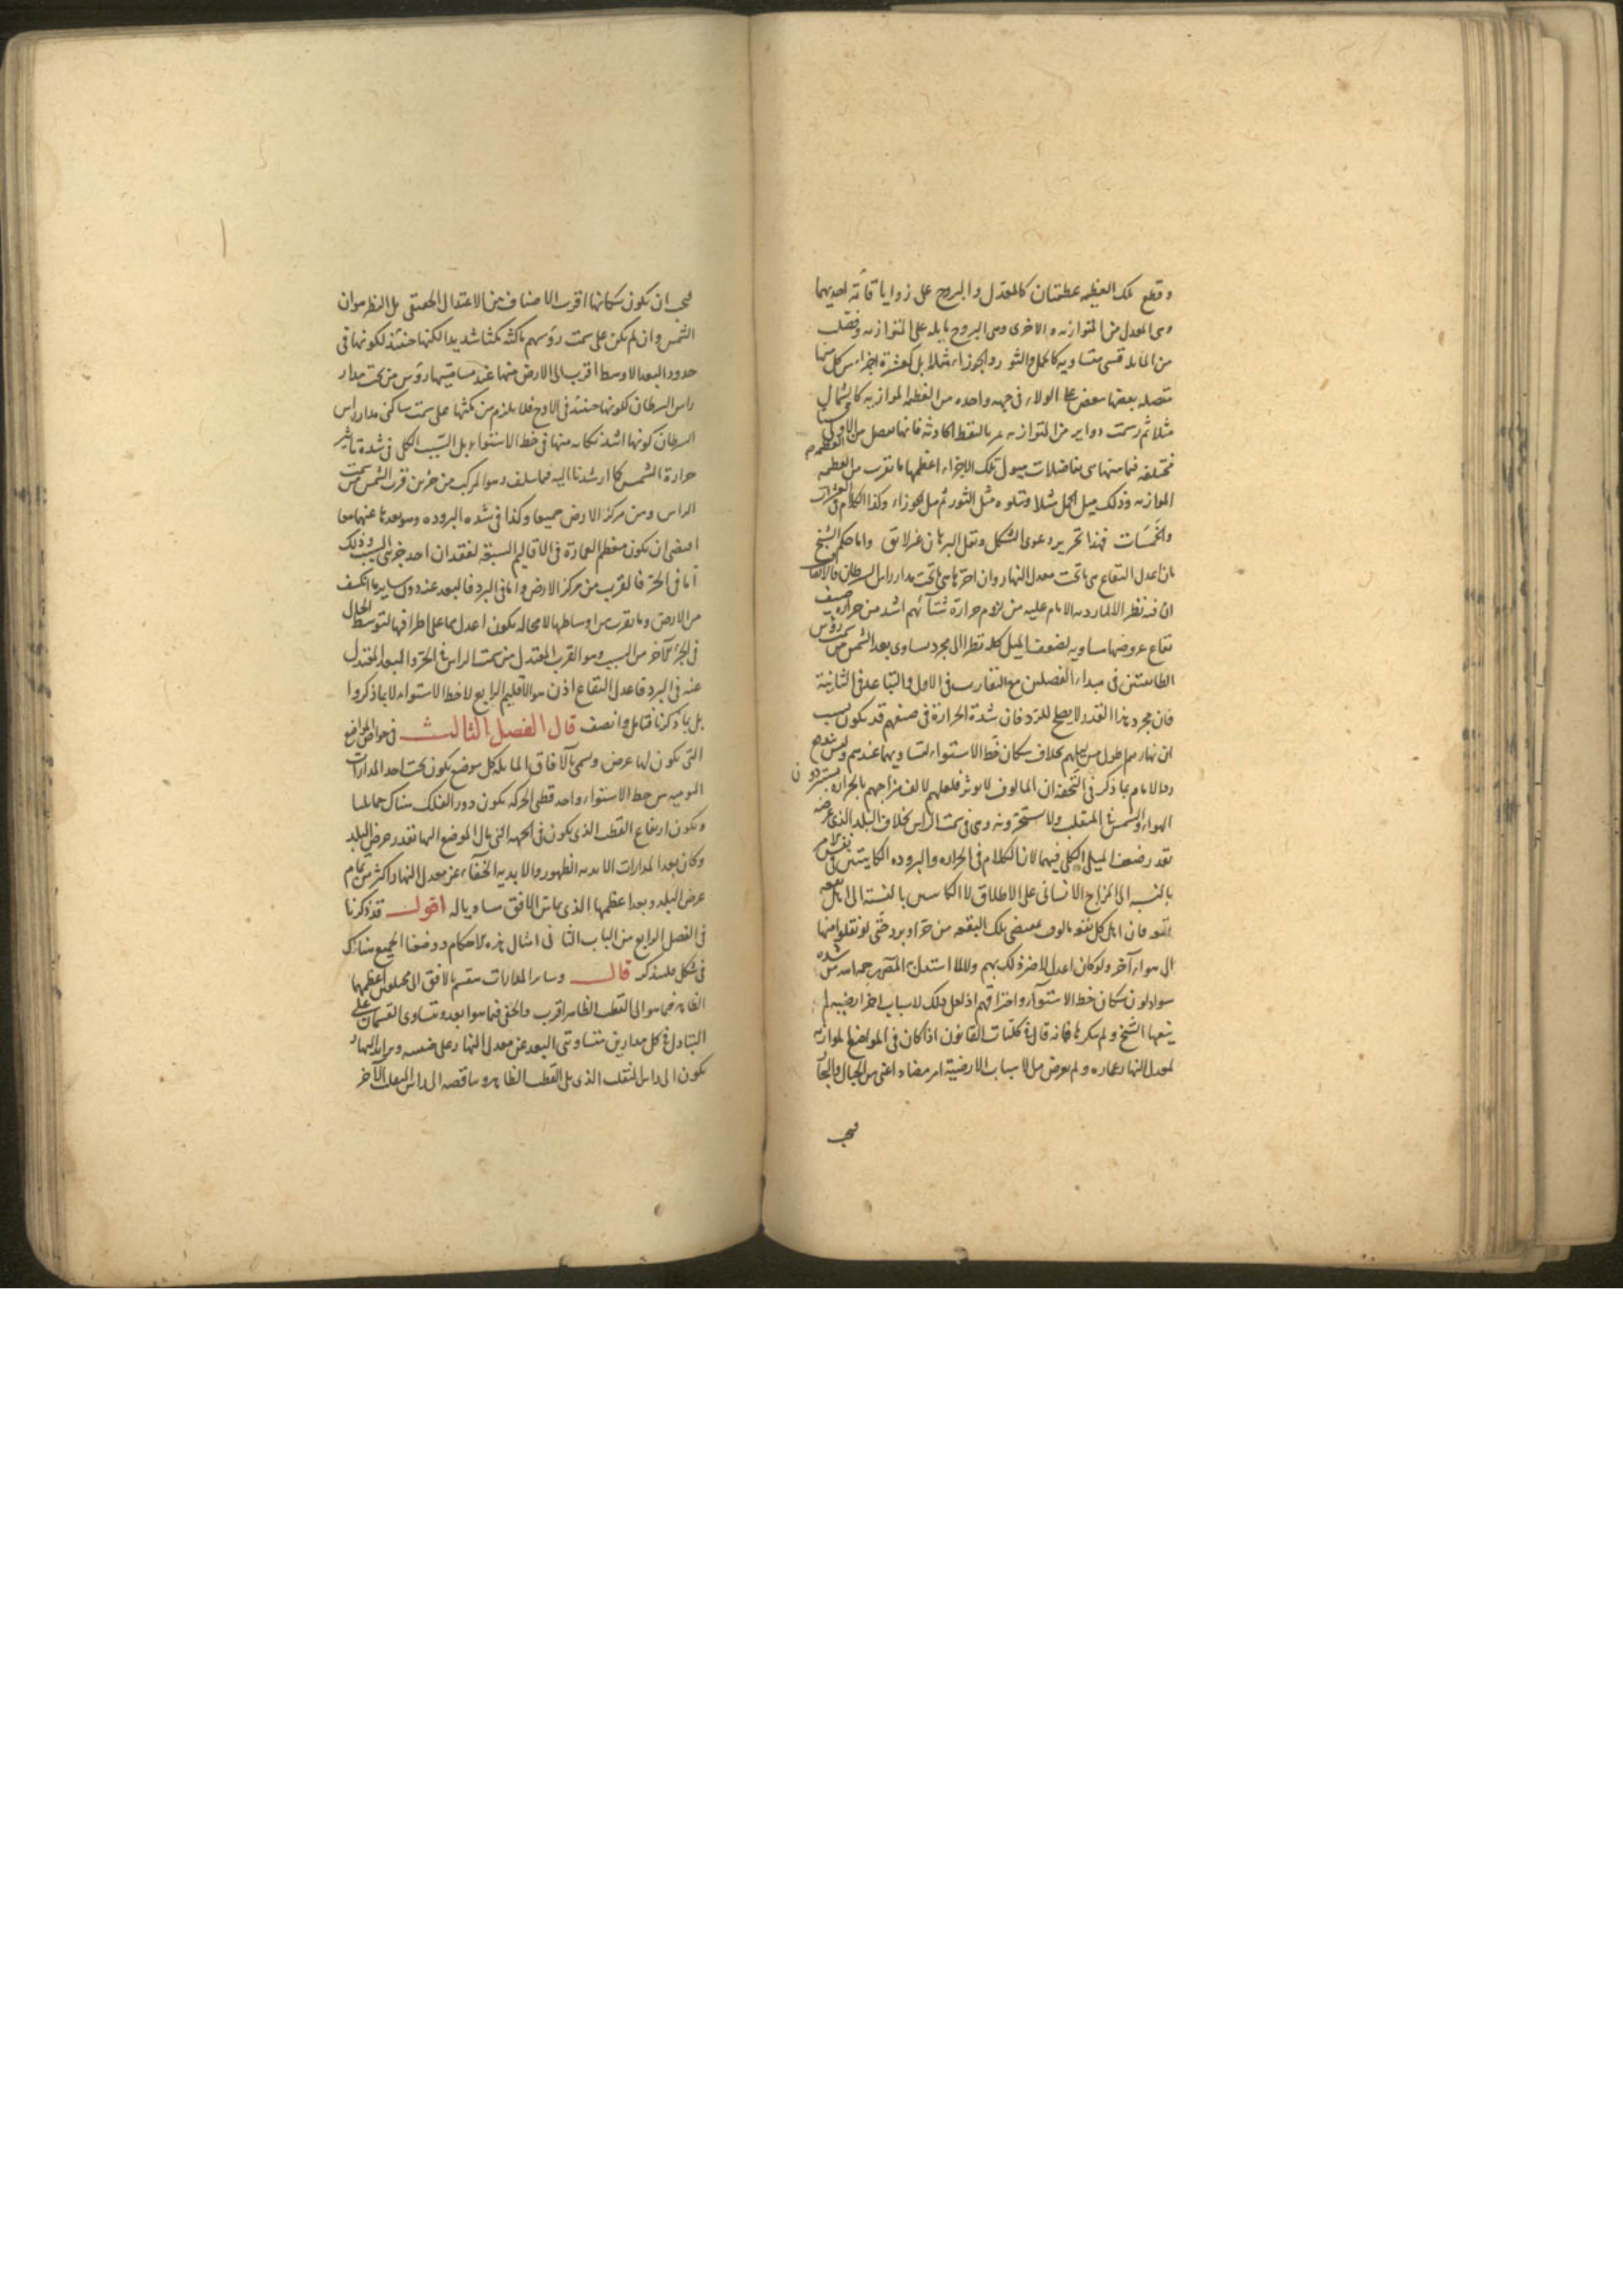 وقطع تلك العظيمه عظيمتان كالمعدل والبروج على زوايا قائمة احديهما
وهى المعدل من المتوازيه والاخرى وهى البروج مايله على المتوازيه وفصلت
من المايله قسى متساويه كالحمل والثور والجوزاء مثلا بل كعشرة اجزاء من كل منها
متصله بعضها ببعض على الولاء فى جهه واحده من العظيمه الموازيه كالشمالى
مثلا ثم رسمت دواير من المتوازيه تمر بالنقط الحادثه فانها تفصل من الاولى
مختلفه فيما بينها هى تفاضلات ميول تلك الاجزاء اعظمها ما تقرب من العظيمه
الموازيه وذلك ميل الحمل مثلا ويتلوه مثل الثور ثم ميل الجوزاء وكذا الكلام فى العشرات
والخمسات فهذا تحرير دعوى الشكل ونقل البرهان غير لايق واما حكم الشيخ
بان اعدل البقاع هى ما تحت معدل النهار وان احرها هى ما تحت مدار راس السرطان
ان فيه نظر الا لما رد به الامام عليه من لزوم حرارة شتائهم اشد من حرارة صيف
بقاع عروضها مساويه لضعف الميل كله نظرا الى مجرد تساوى بعد الشمس من سمت رؤس
الطائفتين فى مبداء الفصلين مع التقارب فى الاول والتباعد فى الثانية
فان مجرد هذا القدر لا يصلح للرد فان شدة الحرارة فى صيفهم قد يكون بسبب
ان نهارهم اطول من ليلهم بخلاف سكان خط الاستواء لتساويهما عندهم وليس مندفع
الامام بما ذكر فى التحفه ان المالوف لا يوثر فلعلهم لالف مزاجهم بالحراره يستبردون
الهواء والشمس فى المنقلب ولا يستحرونه وهى فى سمت الراس بخلاف البلد الذى عرضه
بقدر ضعف الميل الكلى فيهما لان الكلام فى الحراره والبروده الكاينتين فى نفس الامر
بالنسبه الى المزاج الانسانى على الاطلاق لا الكاينتين بالنسبه الى اهل بقعه
بقعه فان اهل كل بقعه مالوف بمقتضى تلك البقعه من حر او برد حتى لو نقلوا منها
الى هواء آخر ولو كان اعدل لاضر ذلك بهم ولا لما استدل به المصنف من شدة
سواد لون سكان خط الاستواء واحتراقهم اذ لعل ذلك لاسباب اخر ارضيه لم
ينفها الشيخ ولم ينكرها فانه قال فى كليات القانون اذا كان فى المواضع الموازيه
لمعدل النهار عماره ولم يعرض من الاسباب الارضية امر مضاد اعنى من الجبال والبحار
فيجب
فيجب ان يكون سكانها اقرب الاصناف من الاعتدال الحقيقى بل النظر هو ان
الشمس وان لم يكن على سمت رؤسهم ماكثه مكثا شديدا لكنها حينئذ لكونها فى
حدود البعد الاوسط اقرب الى الارض منها عند مسامتتها رؤس من تحت مدار
راس السرطان لكونها حينئذ فى الاوج فلا يلزم من مكثها على سمت ساكنى مدار راس
السرطان كونها اشد نكايه منها فى خط الاستواء بل السبب الكلى فى شدة تاثير
حرارة الشمس كما ارشدنا اليه فيما سلف وهو المركب من جزئين قرب الشمس من سمت
الراس ومن مركز الارض جميعا وكذا فى شده البروده وهو بعدها عنهما معا
اقتضى ان يكون معظم العمارة فى الاقاليم السبعة لفقدان احد جزئى السبب وذلك
اما فى الحر فالقرب من مركز الارض واما فى البرد فالبعد عنه دون ساير ما انكشف
من الارض وما تقرب من اوساطها لا محاله يكون اعدل مما على اطرافها لتوسط الحال
فى الجزء الآخر من السبب وهو القرب المعتدل من سمت الراس فى الحر والبعد المعتدل
عنه فى البرد فاعدل البقاع اذن هو الاقليم الرابع لا خط الاستواء لا بما ذكروا
بل بما ذكرنا فتامل وانصف قال الفصل الثالث فى خواص المواضع
التى يكون لها عرض ويسمى بالآفاق المايله كل موضع يكون تحت احد المدارات
اليوميه بين خط الاستواء واحد قطبى الحركه يكون دور الفلك هناك حمايليا
ويكون ارتفاع القطب الذى يكون فى الجهه التى مال الموضع اليها بقدر عرض البلد
وكان بعد المدارات الابديه الظهور والابديه الخفاء عن معدل النهار اكثر من تمام
عرض البلد وبعد اعظمها الذى يماس الافق مساويا له اقول قد ذكرنا
فى الفصل الرابع من الباب الثانى امثال هذه الاحكام ووضعنا الجميع هناك
فى شكل فليتذكر قال وساير المدارات ينقسم بالافق الى مختلفين اعظمهما
الظاهر فيما هو الى القطب الظاهر اقرب والخفى فيما هو ابعد ويتساوى القسمان على
التبادل فى كل مدارين متساويى البعد عن معدل النهار على جنبيه وتزايد النهار
يكون الى راس المنقلب الذى يلى القطب الظاهر وتناقصه الى راس المنقلب الآخر